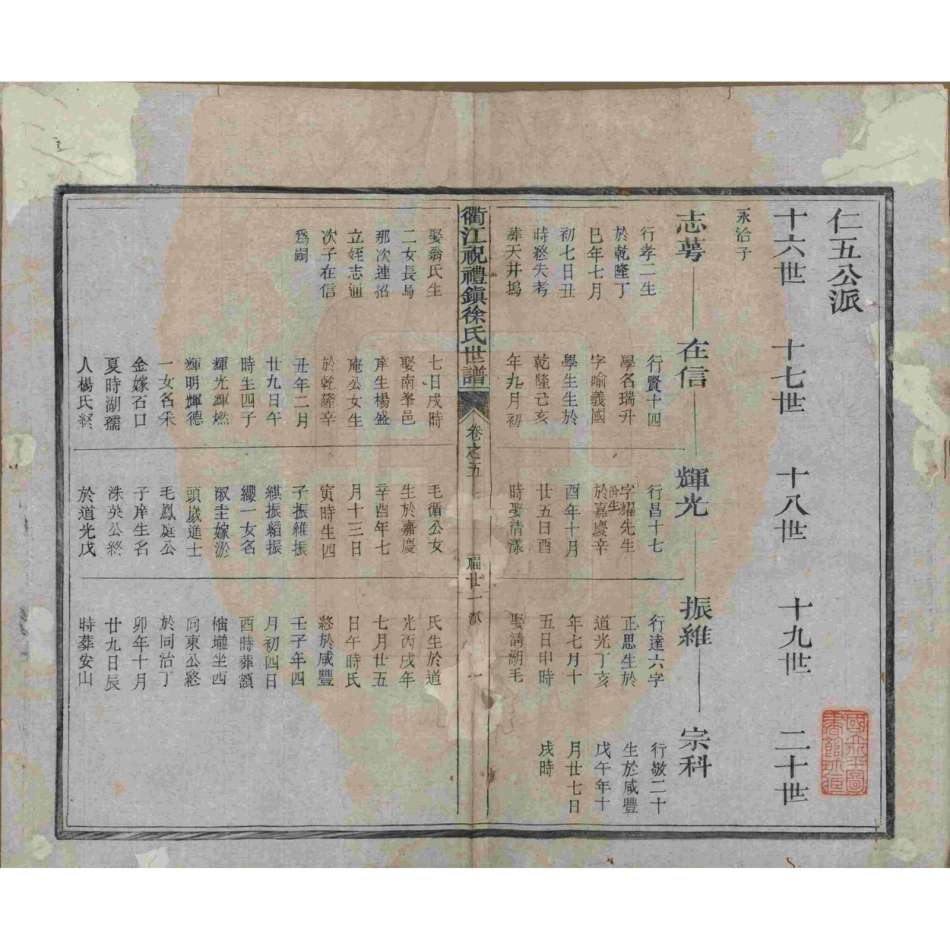 仁五公派
十六世
十七世
十八世
十九世
二十世
永治子
志蕚
在信
輝光
振維
宗科
行孝二生
於乾隆丁
巳年七月
初七日丑
時終失考
葬天井塢
娶翁氏生
二女長烏
那次連招
立姪志通
次子在信
爲嗣
行贒十四
學名瑞升
字喻義國
學生生於
乾隆己亥
年九月初
七日戌時
娶南峯邑
庠生楊盛
庵公女生
於乾隆辛
丑年二月
廿九日午
時生四子
輝光輝燃
輝明輝德
一女名采
金嫁石口
夏時湖孺
人楊氏終
行昌十七
字耀先生
於嘉慶辛
酉年十月
廿五日酉
時娶清漾
毛循公女
生於嘉慶
辛酉年七
月十三日
寅時生四
子振維振
綨振縚振
纓一女名
淑圭嫁淤
頭歲進士
毛鳳庭公
子庠生名
洙英公終
於道光戊
行達六字
正思生於
道光丁亥
年七月十
五日申時
娶清湖毛
氏生於道
光丙戌年
七月廿五
日午時氏
終於咸豐
壬子年四
月初四日
酉時葬額
坐西
向東公終
於同治丁
卯年十月
廿九日辰
時葬安山
行敬二十
生於咸豐
戊午年十
月廿七日
戌時
衢江祝禮鎮徐氏世譜
卷之五
福廿一派
一